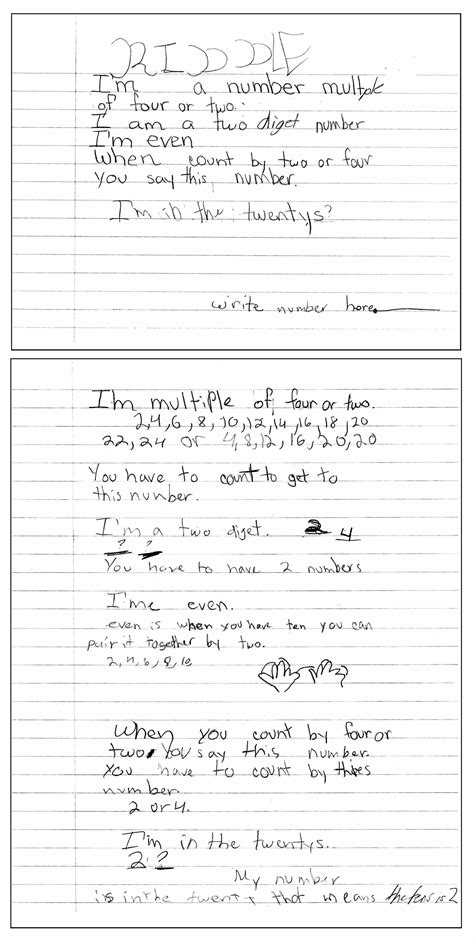 RIDDLE
I'm a number multple
of four or two.
I am a two diget number
I'm even
when count by two or four
you say this number.
I'm in the twentys?
write number here
I'm multiple of four or two.
2,4,6,8,10,12,14,16,18,20
22,24 or 4,8,12,16,20,20
You have to count to get to
this number.
I'm a two diget. 2 4
? ?
You have to have 2 numbers
I'me even.
even is when you have ten you can
pair it together by two.
2,4,6,8,10
When you count by four or
two you say this number.
you have to count by
number
2 or 4.
I'm in the twentys.
2 ?
My number
is in the twenty that means the tens is 2